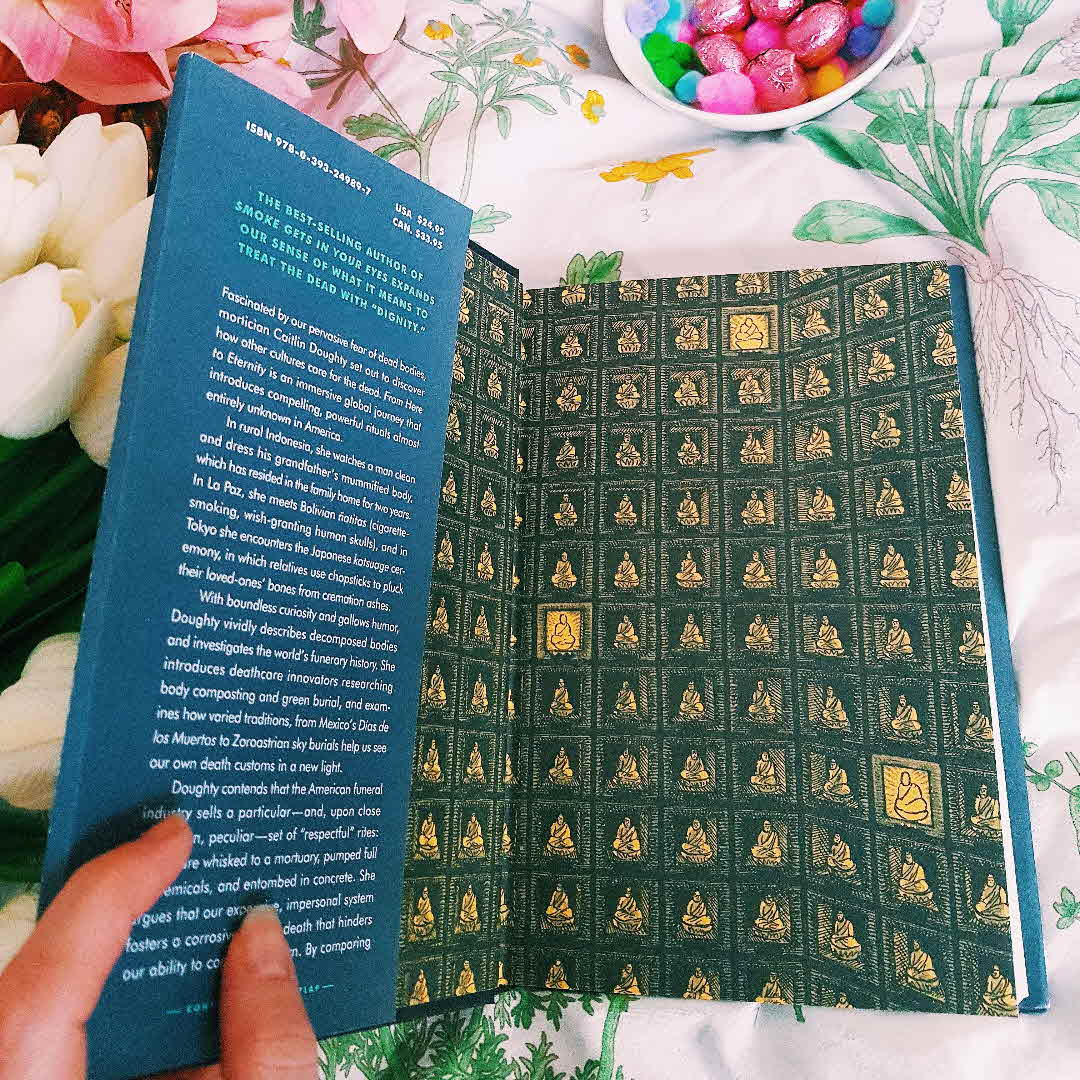 ISBN 978-0-393-24989-7
USA $24.95
CAN. $33.95
THE BEST-SELLING AUTHOR OF
SMOKE GETS IN YOUR EYES EXPANDS
OUR SENSE OF WHAT IT MEANS TO
TREAT THE DEAD WITH "DIGNITY."
Fascinated by our pervasive fear of dead bodies,
mortician Caitlin Doughty set out to discover
how other cultures care for the dead. From Here
to Eternity is an immersive global journey that
introduces compelling, powerful rituals almost
entirely unknown in America.
In rural Indonesia, she watches a man clean
and dress his grandfather's mummified body,
which has resided in the family home for two years.
In La Paz, she meets Bolivian ñatitas (cigarette-
smoking, wish-granting human skulls), and in
Tokyo she encounters the Japanese kotsuage cer-
emony, in which relatives use chopsticks to pluck
their loved-ones' bones from cremation ashes.
With boundless curiosity and gallows humor,
Doughty vividly describes decomposed bodies
and investigates the world's funerary history. She
introduces deathcare innovators researching
body composting and green burial, and exam-
ines how varied traditions, from Mexico's Días de
los Muertos to Zoroastrian sky burials help us see
our own death customs in a new light.
Doughty contends that the American funeral
industry sells a particular—and, upon close
peculiar—set of "respectful" rites:
whisked to a mortuary, pumped full
and entombed in concrete. She
argues that our impersonal system
fosters a death that hinders
our ability to By comparing
3